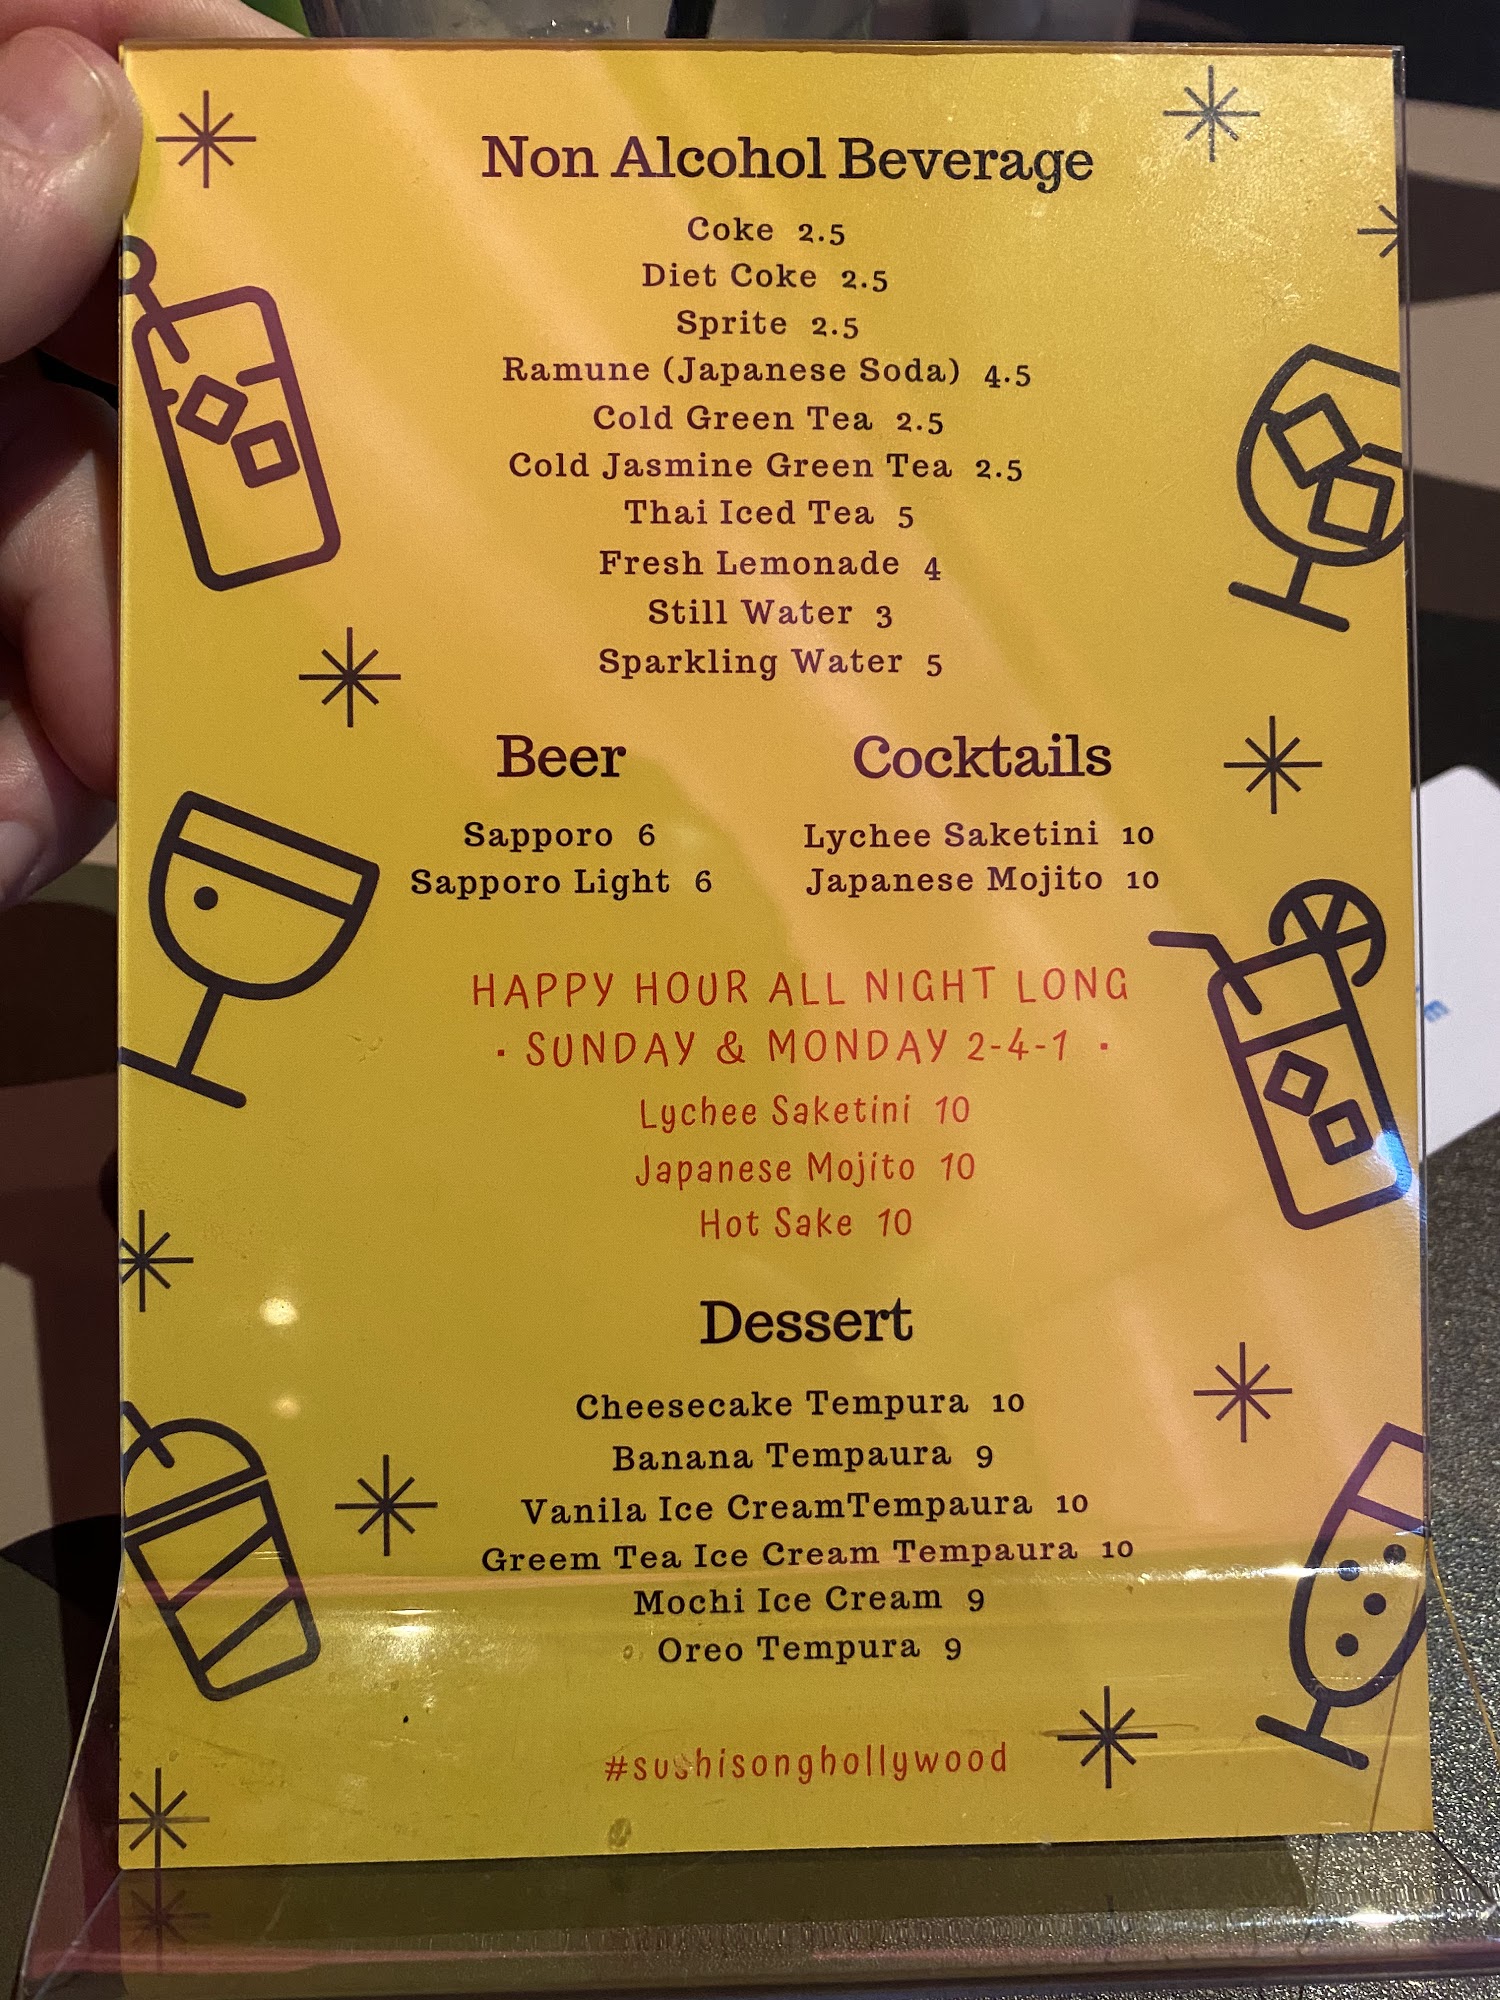 Non Alcohol Beverage
Coke 2.5
Diet Coke 2.5
Sprite 2.5
Ramune (Japanese Soda) 4.5
Cold Green Tea 2.5
Cold Jasmine Green Tea 2.5
Thai Iced Tea 5
Fresh Lemonade 4
Still Water 3
Sparkling Water 5
Beer
Sapporo 6
Sapporo Light 6
Cocktails
Lychee Saketini 10
Japanese Mojito 10
HAPPY HOUR ALL NIGHT LONG
· SUNDAY & MONDAY 2-4-1 ·
Lychee Saketini 10
Japanese Mojito 10
Hot Sake 10
Dessert
Cheesecake Tempura 10
Banana Tempaura 9
Vanila Ice CreamTempaura 10
Greem Tea Ice Cream Tempaura 10
Mochi Ice Cream 9
Oreo Tempura 9
#sushisonghollywood